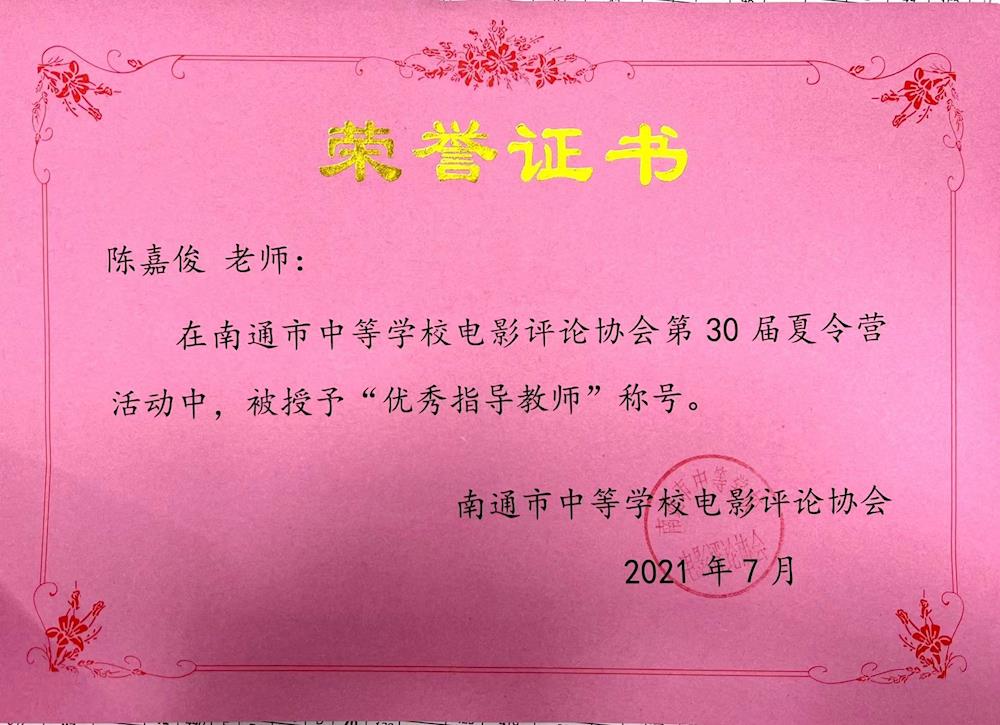 荣誉证书
陈嘉俊 老师：
在南通市中等学校电影评论协会第 30 届夏令营
活动中，被授予“优秀指导教师”称号。
南通市中等学校电影评论协会
2021 年 7 月